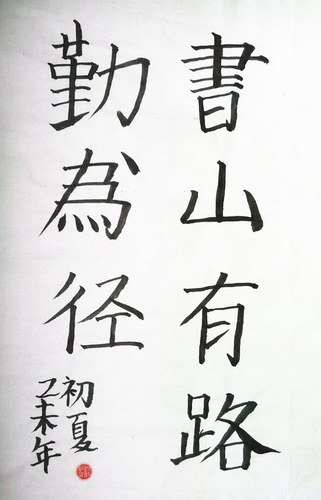 書山有路
勤為径
初夏
乙未年